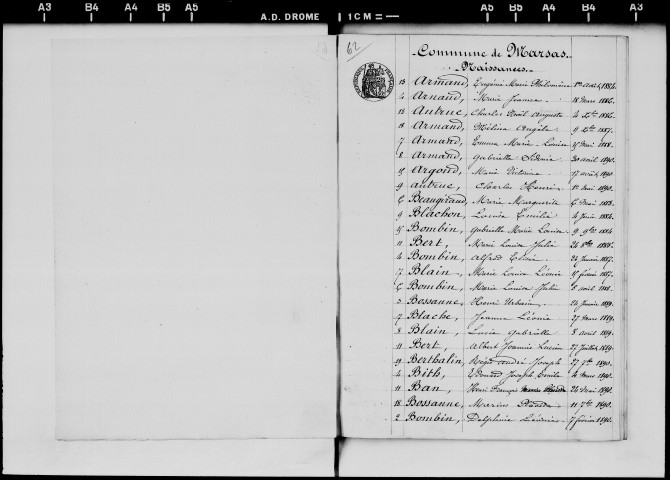 A3 B4 A4 B5 A5 A.D. DROME 1CM= A5 B5 A4 B4 A3
62
Commune de Marsas.
Naissances.
13 Armand, Eugénie Marie Philomène 1er août 1884.
4 Arnaud, Marie Jeanne 18 mars 1886.
Autruc, Charles Noël Auguste 4 Xbre 1886.
18 Armand, Mélina Angèle 9 Xbre 1887.
7 Armand, Emma Marie Louise 15 mai 1888.
8 Armand, Gabrielle 30 avril 1890.
15 Argoud, Marie Victorine 17 août 1890
9 Autruc, Charles Henri 1er mai 1890.
6 Beaugiraud, Marie Marguerite 6 mai 1883.
9 Blachon, Lucie Emilie 4 juin 1884.
15 Bombin, Gabrielle Marie Louise 9 9bre 1884
11 Bert, Marie Louise Julie 26 8bre 1886.
4 Bombin, Alfred 24 janvier 1887.
7 Blain, Marie Louise Léonie 15 février 1887.
6 Bombin, Marie Louise Julie 8 août 1888.
3 Bossanne, Henri Urbain 24 janvier 1889.
7 Blache, Jeanne Léonie 27 mars 1889.
8 Blain, Lucie Gabrielle 8 avril 1889.
11 Bert, Albert Joannis Lucien 27 juillet 1889.
19 Berthalin, Régis André Joseph 27 7bre 1890.
4 Bith, Edouard Joseph Emile 4 mars 1890.
11 Ban, Henri François 24 mai 1890.
18 Bossanne, Marius 11 7bre 1890.
2 Bombin, Delphine 7 février 1891.